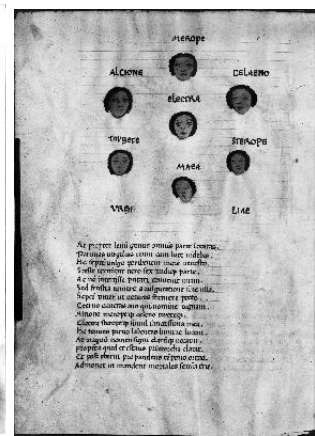 MEROPE
ALCIONE CELAENO
ELECTRA
TAYGETE STEROPE
MAEA
VIRGI LIAE
At propter genus omnis parte locatas
Paruas uirgilias tenui cum luce uidebis
Hae septem perhibentur more uetusto
Stelle cernunt uero sex undiq parte
putari conuenit unam
Sed frustra temere a ratione sine ulla
Septe ut ueteres statuere poetae
Aeterno cunctas aeuo qui nomine dignant
Alcione meropeq celeno
Electra steropeq simul sanctissima maea
Hae tenues paruo labentes lumine lucent
At magnu nomen signi clarumq uocatur
propterea quod et estatis primordia clarat
Et post temporis ortus
Admonet ut mandent mortales semina